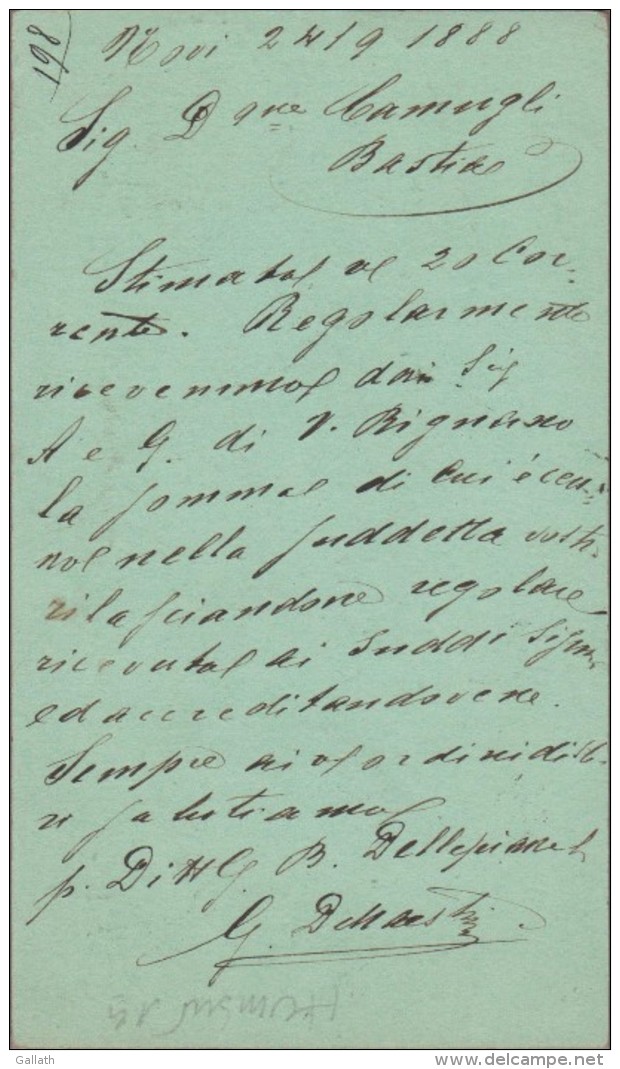 198
Novi 24/9 1888
Sig. Dque Camugli
Bastia
Stimata vs 20 Cor-
rente. Regolarmente
ricevemmo dai Sig
A e G. di V. Bignano
la somma di cui è cen-
no nella suddetta vostr
rilasciandone regolare
ricevuta ai suddi Signri
ed accreditandovene.
Sempre ai vs ordini
salutiamo
p. Ditta G. B. Dellepiane
G.
Gallath
©delcampe.net